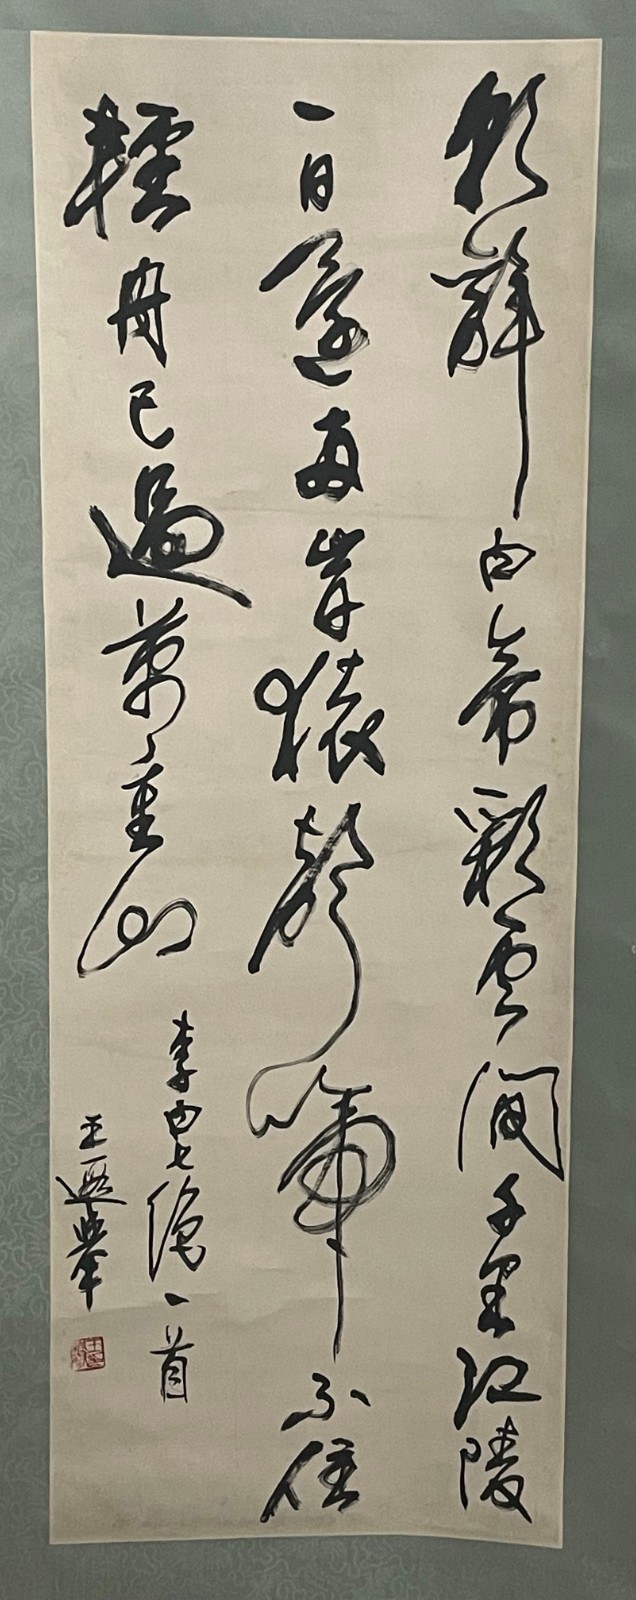 朝辭白帝彩雲間千里江陵
一日還兩岸猿聲啼不住
輕舟已過萬重山
李白七絕一首
王遐舉